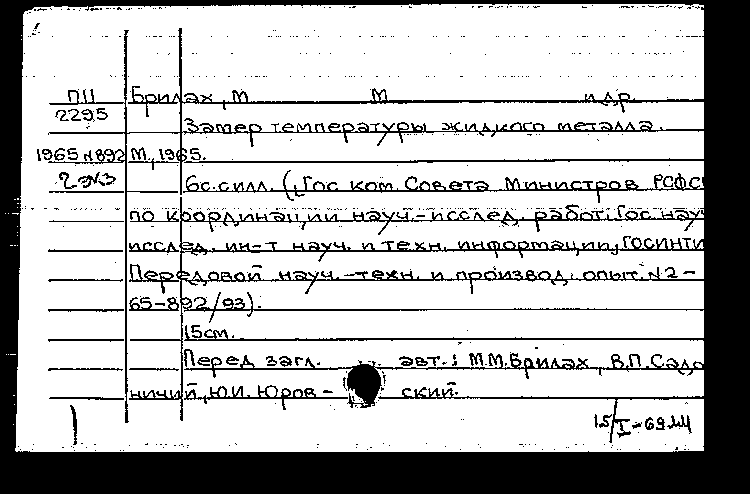 П11 Брилах, М М и др.
2295
Замер температуры жидкого металла.
1965 №892 М., 1965.
2 экз 6с.силл. (Гос ком. Совета Министров РСФС
по координации науч.-исслед. работ. Гос науч
исслед. ин-т науч. и техн. информации, ГОСИНТИ
Передовой науч.-техн. и производ. опыт. №2-
65-892/93).
15см.
Перед загл. авт.: М.М.Брилах, В.П.Садо
ничий, Ю.И. Юров- ский.